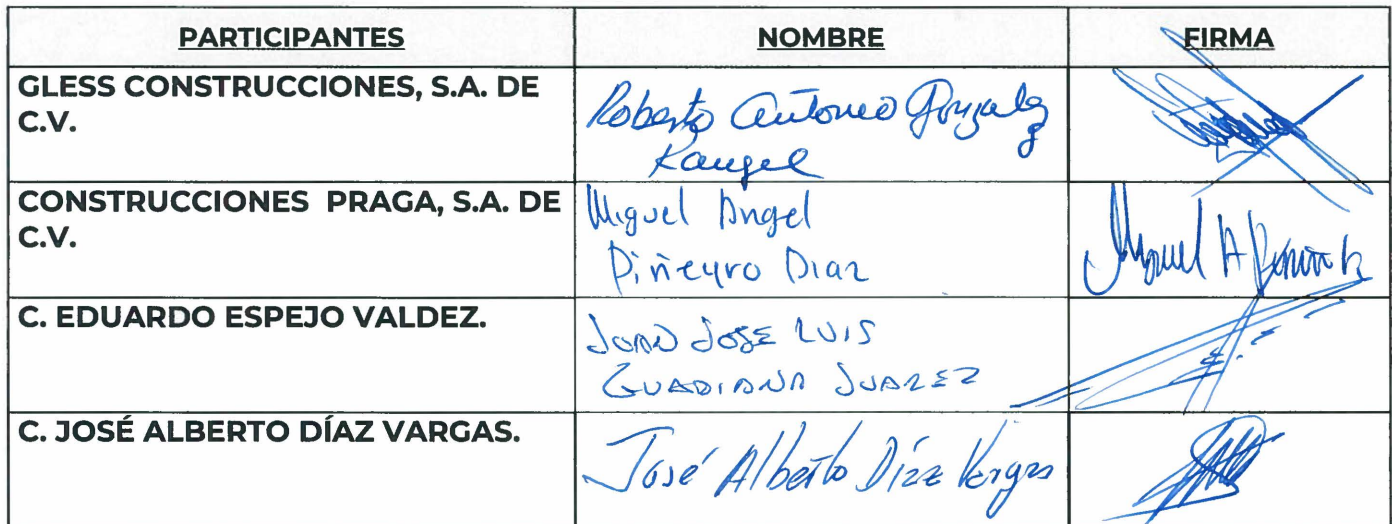 PARTICIPANTES NOMBRE FIRMA
GLESS CONSTRUCCIONES, S.A. DE
C.V.
Roberto Antonio Gonzalez
Rangel
CONSTRUCCIONES PRAGA, S.A. DE
C.V.
Miguel Angel
Piñeyro Diaz
Miguel A
C. EDUARDO ESPEJO VALDEZ.
JUAN JOSE LUIS
GUADIANA JUAREZ
C. JOSÉ ALBERTO DÍAZ VARGAS.
José Alberto Díaz Vargas